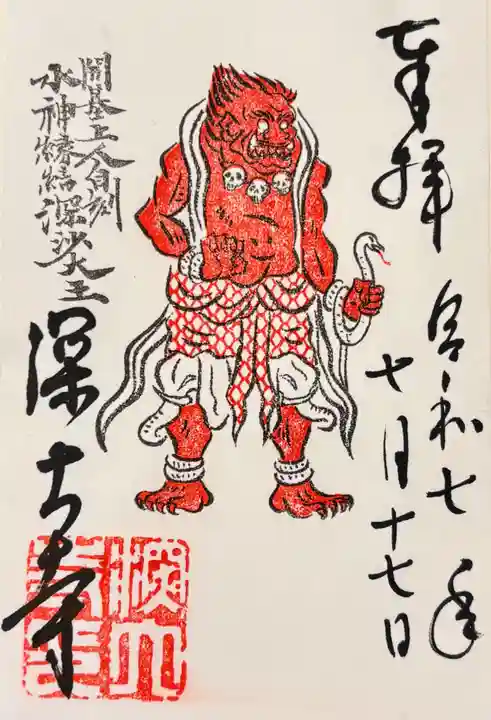 奉拝
令和七年
十月十七日
開基上人自刻
水神縁結深沙大王
深大寺